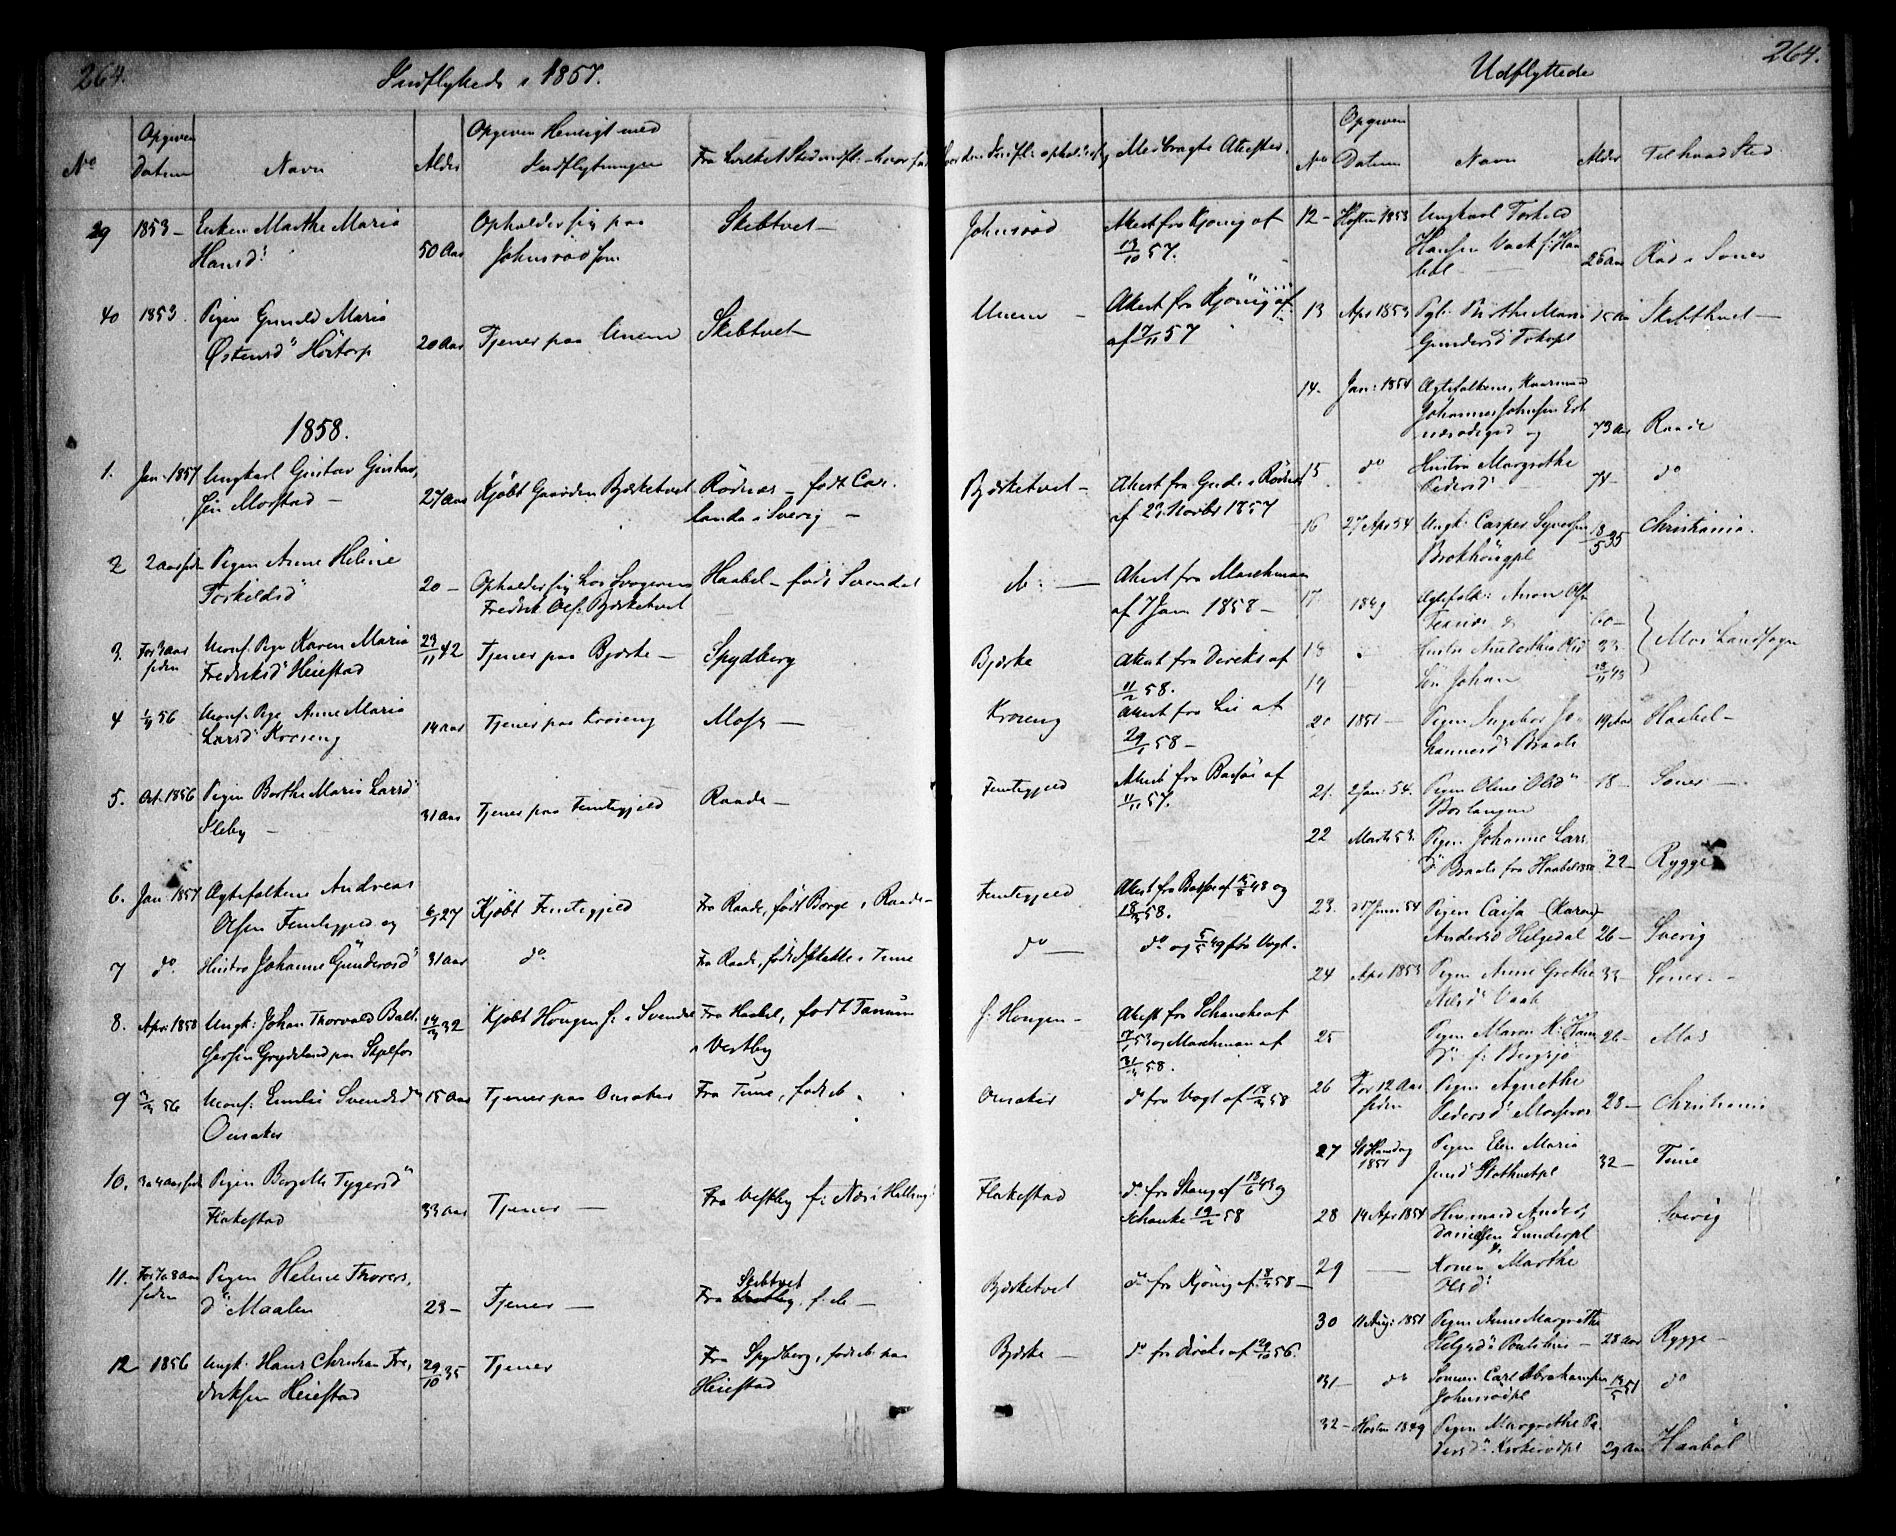 264.
Indflyttede i 1857.
No
Opgiven Datum
Navn
Alder
Opgiven Hensigt med Indflytningen
Medbragte Attester
29 1853 — Enken Marthe Maria
Hansd. 50 Aar
Opholder sig paa
Johnsrød
Skibtvet —
Johnsrød
Attest fra Kjønig af
13/10 57.
40 1853 Pigen Gunild Maria
Østensd. Hörtorp 20 Aar
Tjener paa Unem
Skibtvet
Unem —
Attest fra Kjønig af
af 7/11 57
1858.
1. Jan. 1857 Ungkarl Gustav Gustav
sen Morstad — 27 Aar
Kjøbt Gaarden Bjerketvet
Rödnes — født
i Sverig —
Bjerketvet —
Attest fra
af 23 Novbr 1857
2 2 Aar siden Pigen Anne Helene
Torkildsd. 20 —
Opholder sig hos Svogeren
Fredrik Ols. Bjerketvet
Haabøl — født Svendal
do —
Attest fra Maschman
af 7 Jan 1858 —
3. For 3 Aar siden
Conf. Pige Karen Maria
Fredriksd. Heiestad 23/11 42
Tjener paa Bjerke —
Spydberg
Bjerke
Attest fra Diriks af
11/2 58.
4 56 Conf. Pige Anne Maria
Larsd. Kroseng 14 Aar
Tjener paa Kroseng
Moss —
Kroseng
Attest fra Lie af
58 —
5. Oct. 1856 Pigen Berthe Maria Larsd.
Kleby — 31 Aar
Tjener paa Femtegjeld
Raade —
Femtegjeld
Attest fra Bassøe af
11/11 57.
6. Jan. 1857 Ægtefolkene Andreas
Olsen Femtegjeld og 27
Kjøbt Femtegjeld
Fra Raade, født Borge i Raade
Femtegjeld
Attest fra Bassøe af 48 og
58.
7 do Hustru Johanne Gundersd. 31 Aar
do
Fra Raade, født i Tune
do —
do og 49 fra Vogt.
8. Apr. 1858 Ungk: Johan Thorvald Balt
sersen Grydeland paa Skjelfos 32
Kjøbt Hougen f: i Svendal
Fra Haabøl, født Tanum
i Vestby
f: Hougen —
Attest fra Schanche af
53 og Maschman af
58.
9 56 Conf: Emilie Svendsd. 15 Aar
Onsaker
Tjener paa Onsaker
Fra Tune, født ib.
Onsaker
do fra Vogt af 58
10. 3 a 4 Aar siden Pigen Tygersd.
Flakestad 33 Aar
Tjener —
Fra Vestby f: Næs i Hallingd:
Flakestad
do fra Stang af 43 og
Schanke 58
11. For 7 a 8 Aar siden
Pigen Helene Thorers
d. Maalen 23 —
Tjener —
Fra Skibtvet, f: ib —
Bjerketvet
do fra Kjønig af 58 —
12 1856 Ungk: Hans Christian Fre
driksen Heiestad 29/10 35
Tjener
Fra Spydberg, født ib paa
Heiestad
Bjerke —
do fra Diriks af 56.
Udflyttede
264.
No
Opgiven Datum
Navn
Alder
Til hvad Sted
12 — Høsten 1853 Ungkarl Torkild
Hansen Vaek 26 Aar
Rød i Soner
13 Apr 1853 Berthe Maria
Gundersd. 15 Aar
Skibthvet —
14. Jan: 1854 Ægtefolkene, Huusmand
Johannes Johnsen
og 73 Aar
Raade
15 do Hustru Margrethe
Pedersd. 74 —
do
16 27 Apr 54 Ungk: Casper Syversen
Brækhöugpl. 18/5 35
Christiania.
17 1849 Ægtefolk: Anon Ols.
60 —
Mos Landsogn
18 Hustru 53
19 Søn Johan
20 1851 — Pigen Ingebor Jo
hannesd. Braate 19 Aar
Haabøl —
21. 2 Jan: 54. Pigen Oline Olsd. 18 —
Boslangen
Soner —
22 Marts 53. Pigen Johanne Lars
d. Braate fra Haabøl 22 —
Rygge
23. d 17 Juni 54 Pigen Caisa (Karen)
Andersd. Helgedal 26 —
Sverig
24 Apr 1853 Pigen Anne Grethe 33 —
Nilsd. Vaak
Soner —
25 Pigen Maren K: Han 26 —
f: Bergsjø
Mos
26 For 12 Aar siden
Pigen Agnethe
Pedersd. 28 —
Christiania
27 St Hansdag 1851
Pigen Elen Maria
Jensd. 32 —
Tune
28 14 Apr 1854 Huusmand Anders
Danielsen Lunderpl.
Sverig
29 — Konen Marthe
Olsd.
30 11 Aug: 1851 Pigen Anne Margrethe
Helgesd. 28 Aar
Rygge —
31 — do Sønnen Carl Abrahamsen
Johnsrødpl. 51
do
32 — Høsten 1849 Pigen Margrethe Pe
dersd. Kirkerødpl. 29 Aar
Haabøl